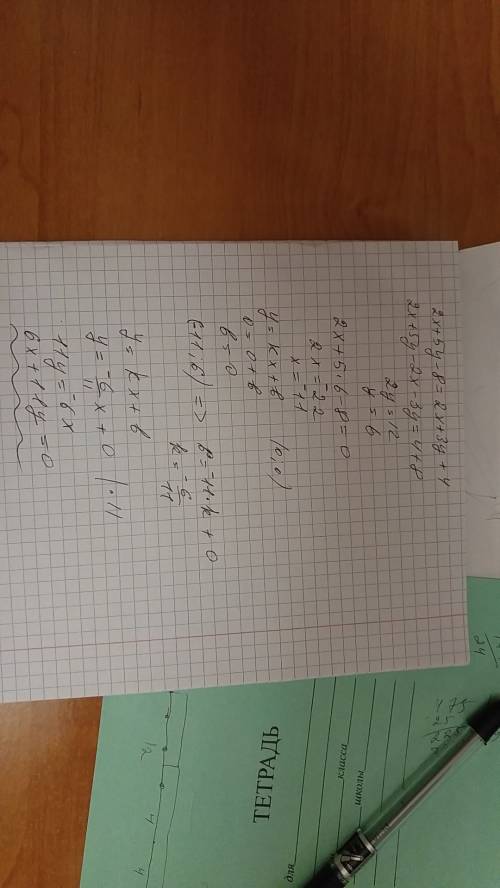 2x+5y-8=2x+3y+4
2x+5y-2x-3y=4+8
2y=12
y=6
2x+5·6-8=0
2x=-22
x=-11
y=kx+b (0,0)
0=0+b
b=0
(-11;6) => 6=-11·k+0
k=-6/11
y=kx+b
y=-6/11x+0 /·11
11y=-6x
6x+11y=0
ТЕТРАДЬ
для
класса
школы
24
12
4
4